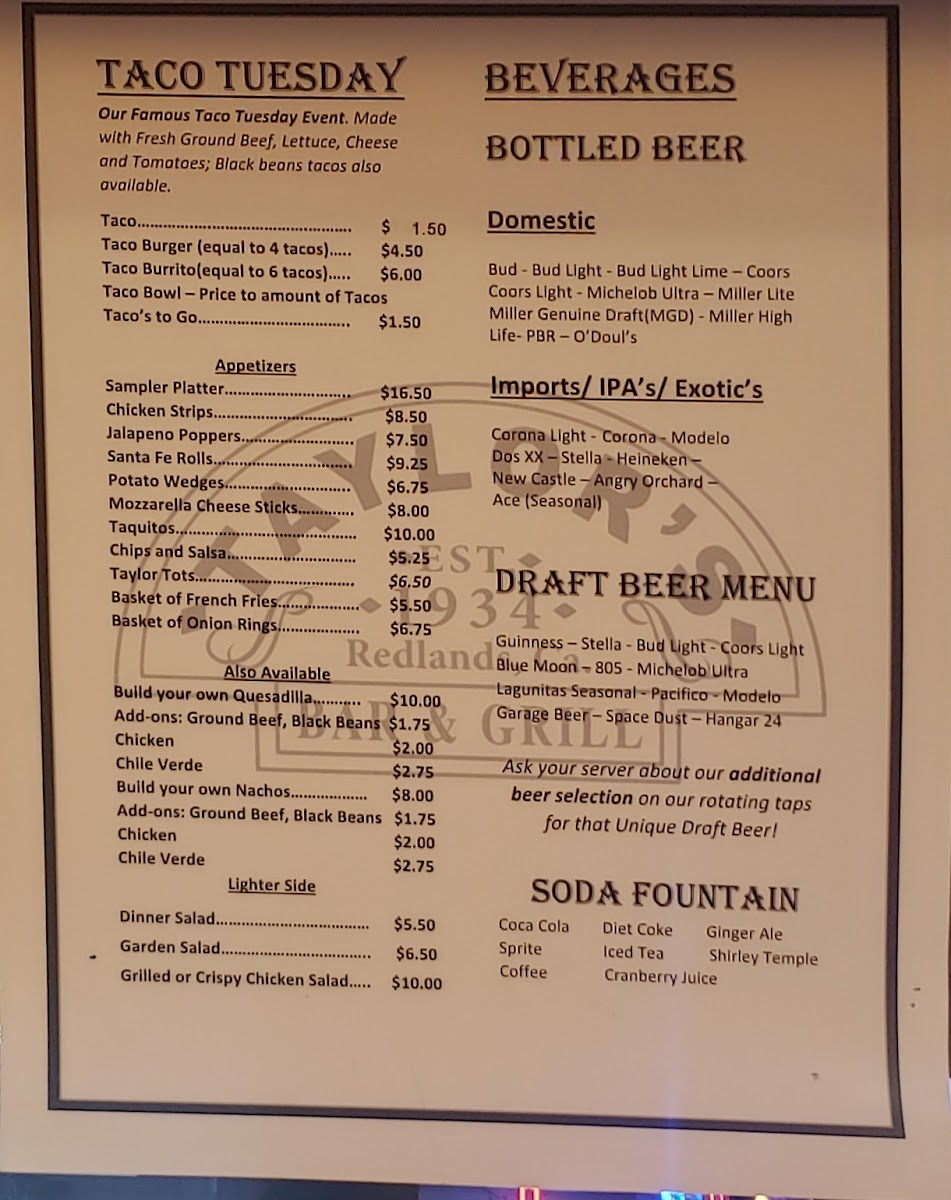 TACO TUESDAY
Our Famous Taco Tuesday Event. Made
with Fresh Ground Beef, Lettuce, Cheese
and Tomatoes; Black beans tacos also
available.
Taco............................................... $ 1.50
Taco Burger (equal to 4 tacos)..... $4.50
Taco Burrito(equal to 6 tacos)..... $6.00
Taco Bowl – Price to amount of Tacos
Taco's to Go.................................. $1.50
Appetizers
Sampler Platter............................ $16.50
Chicken Strips.............................. $8.50
Jalapeno Poppers......................... $7.50
Santa Fe Rolls............................... $9.25
Potato Wedges............................ $6.75
Mozzarella Cheese Sticks............ $8.00
Taquitos........................................ $10.00
Chips and Salsa............................ $5.25
Taylor Tots................................... $6.50
Basket of French Fries.................. $5.50
Basket of Onion Rings.................. $6.75
Also Available
Build your own Quesadilla........... $10.00
Add-ons: Ground Beef, Black Beans $1.75
Chicken $2.00
Chile Verde $2.75
Build your own Nachos................. $8.00
Add-ons: Ground Beef, Black Beans $1.75
Chicken $2.00
Chile Verde $2.75
Lighter Side
Dinner Salad.................................. $5.50
Garden Salad................................. $6.50
Grilled or Crispy Chicken Salad..... $10.00
BEVERAGES
BOTTLED BEER
Domestic
Bud - Bud Light - Bud Light Lime – Coors
Coors Light - Michelob Ultra – Miller Lite
Miller Genuine Draft(MGD) - Miller High
Life- PBR – O'Doul's
Imports/ IPA's/ Exotic's
Corona Light - Corona - Modelo
Dos XX – Stella - Heineken –
New Castle – Angry Orchard –
Ace (Seasonal)
DRAFT BEER MENU
Guinness – Stella - Bud Light - Coors Light
Blue Moon – 805 - Michelob Ultra
Lagunitas Seasonal - Pacifico - Modelo
Garage Beer – Space Dust – Hangar 24
Ask your server about our additional
beer selection on our rotating taps
for that Unique Draft Beer!
SODA FOUNTAIN
Coca Cola Diet Coke Ginger Ale
Sprite Iced Tea Shirley Temple
Coffee Cranberry Juice
TAYLOR'S
EST
1934
Redlands, Ca
BAR & GRILL